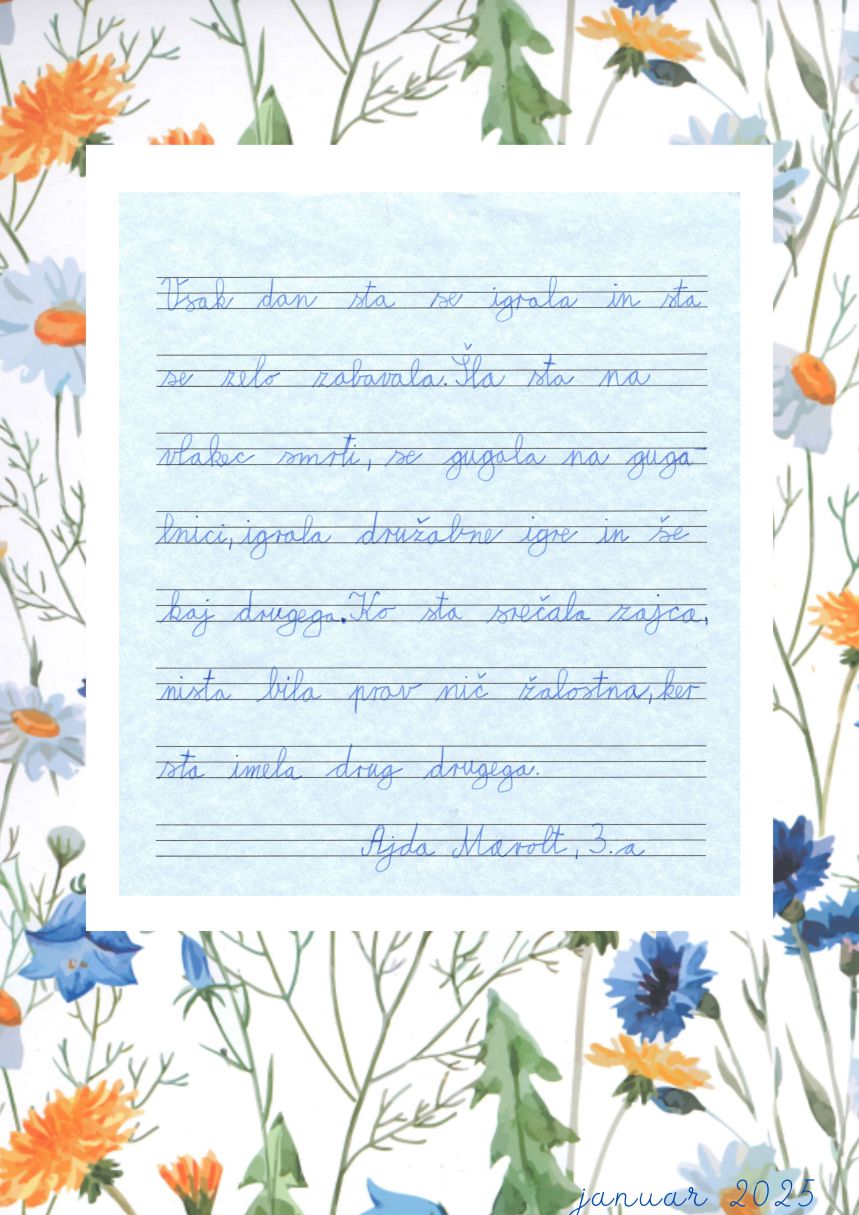 Vsak dan sta se igrala in sta
se zelo zabavala. Šla sta na
vlakec smrti, se gugala na guga-
lnici, igrala družabne igre in še
kaj drugega. Ko sta srečala zajca,
nista bila prav nič žalostna, ker
sta imela drug drugega.
Ajda Marolt, 3. a
januar 2025